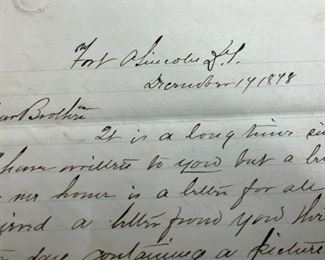 Fort A Lincoln D.T.
December 17 1878
ear Brother
It is a long time sin
I have written to you but a le
me home is a letter for all
ceived a letter from you this
day containing a picture